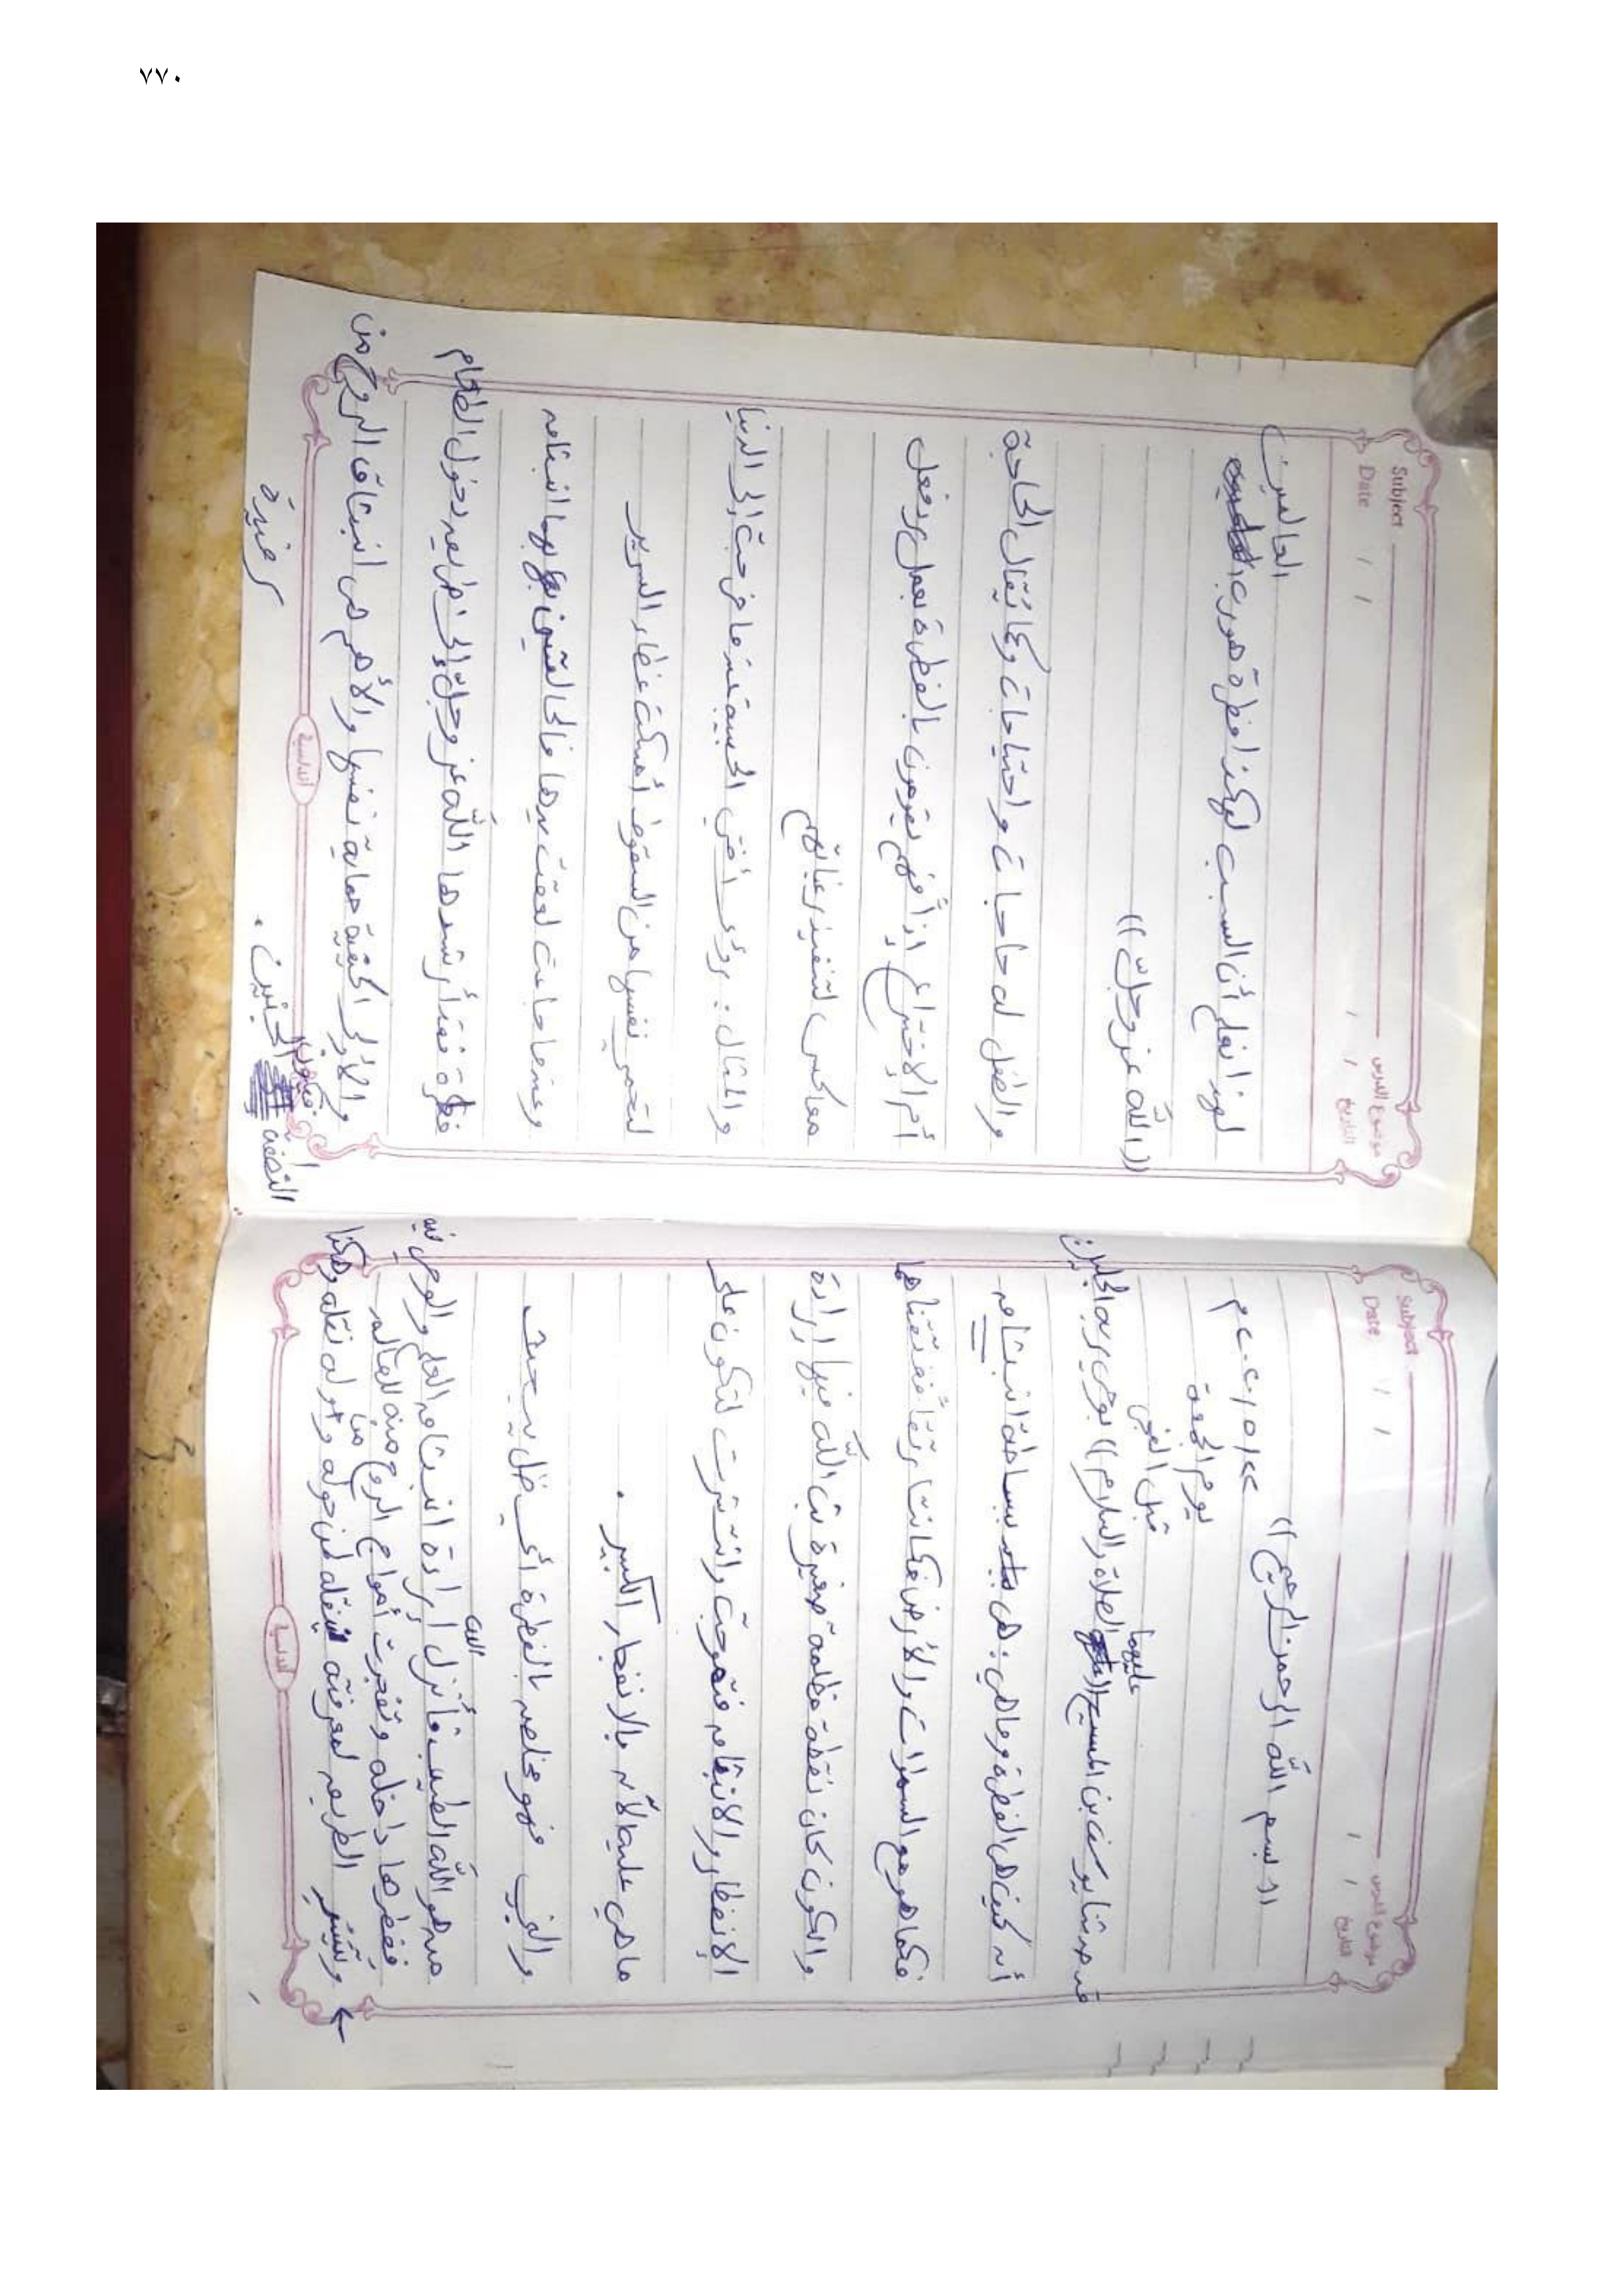 ٧٧٠
Subject موضوع الدرس
Date / / التاريخ / /
((بسم الله الرحمن الرحيم))
٢٢/٥/٢٠٢٠م
يوم الجمعة
قبل الفجر
حدثنا يوسف بن المسيح ((عليهما الصلاة والسلام)) بوحي ربه الجليل
أنه كيف هي الفطرة وما هي : هي ببساطة انبثاق
فكما هو مع السموات والأرض فكانتا رتقاً ففتقناهما
والكون كان نقطة مظلمة صغيرة بث الله فيها إرادة
الإنفطار والانبثاق فتموجت وانتشرت لتكون على
ما هي عليه الآن بالانفجار الكبير .
والنبي فهو مخلص بالفطرة أي يظل يبحث
هو الله الطيب فأنزل الله إرادة انبثاق العلم والوحي فيه
ففطرها داخله وتفجرت أمواج الروح منه للعالم
الطريق لمعرفته لمن حوله نقله وهكذا
أندلسية
Subject موضوع الدرس
Date / / التاريخ / /
لهذا نعلم أن السبب لهكذا فطرة هو رب العالمين
((الله عز وجل))
والطفل له حاجات واحتياجات وكما يُقال الحاجة
أم الإختراع إذاً فهم يقومون بالفطرة بعمل رد فعل
معاكس لتنفيذ رغباتهم
والمثال : رؤى أختي الحبيبة عندما خرجت إلى الدنيا
لتحمي نفسها من السقوط أمسكت غطاء السرير
وعندما جاعت لعقت يدها فالحالتين بهما انبثاق
فطرة فقد أرشدها الله عز وجل إلى طريق دخول الطعام
والأولى الحقيقية حماية نفسها والأهم هي انبثاق الروح من
النطفة فيكون الجنين .
✓ مفيدة
أندلسية